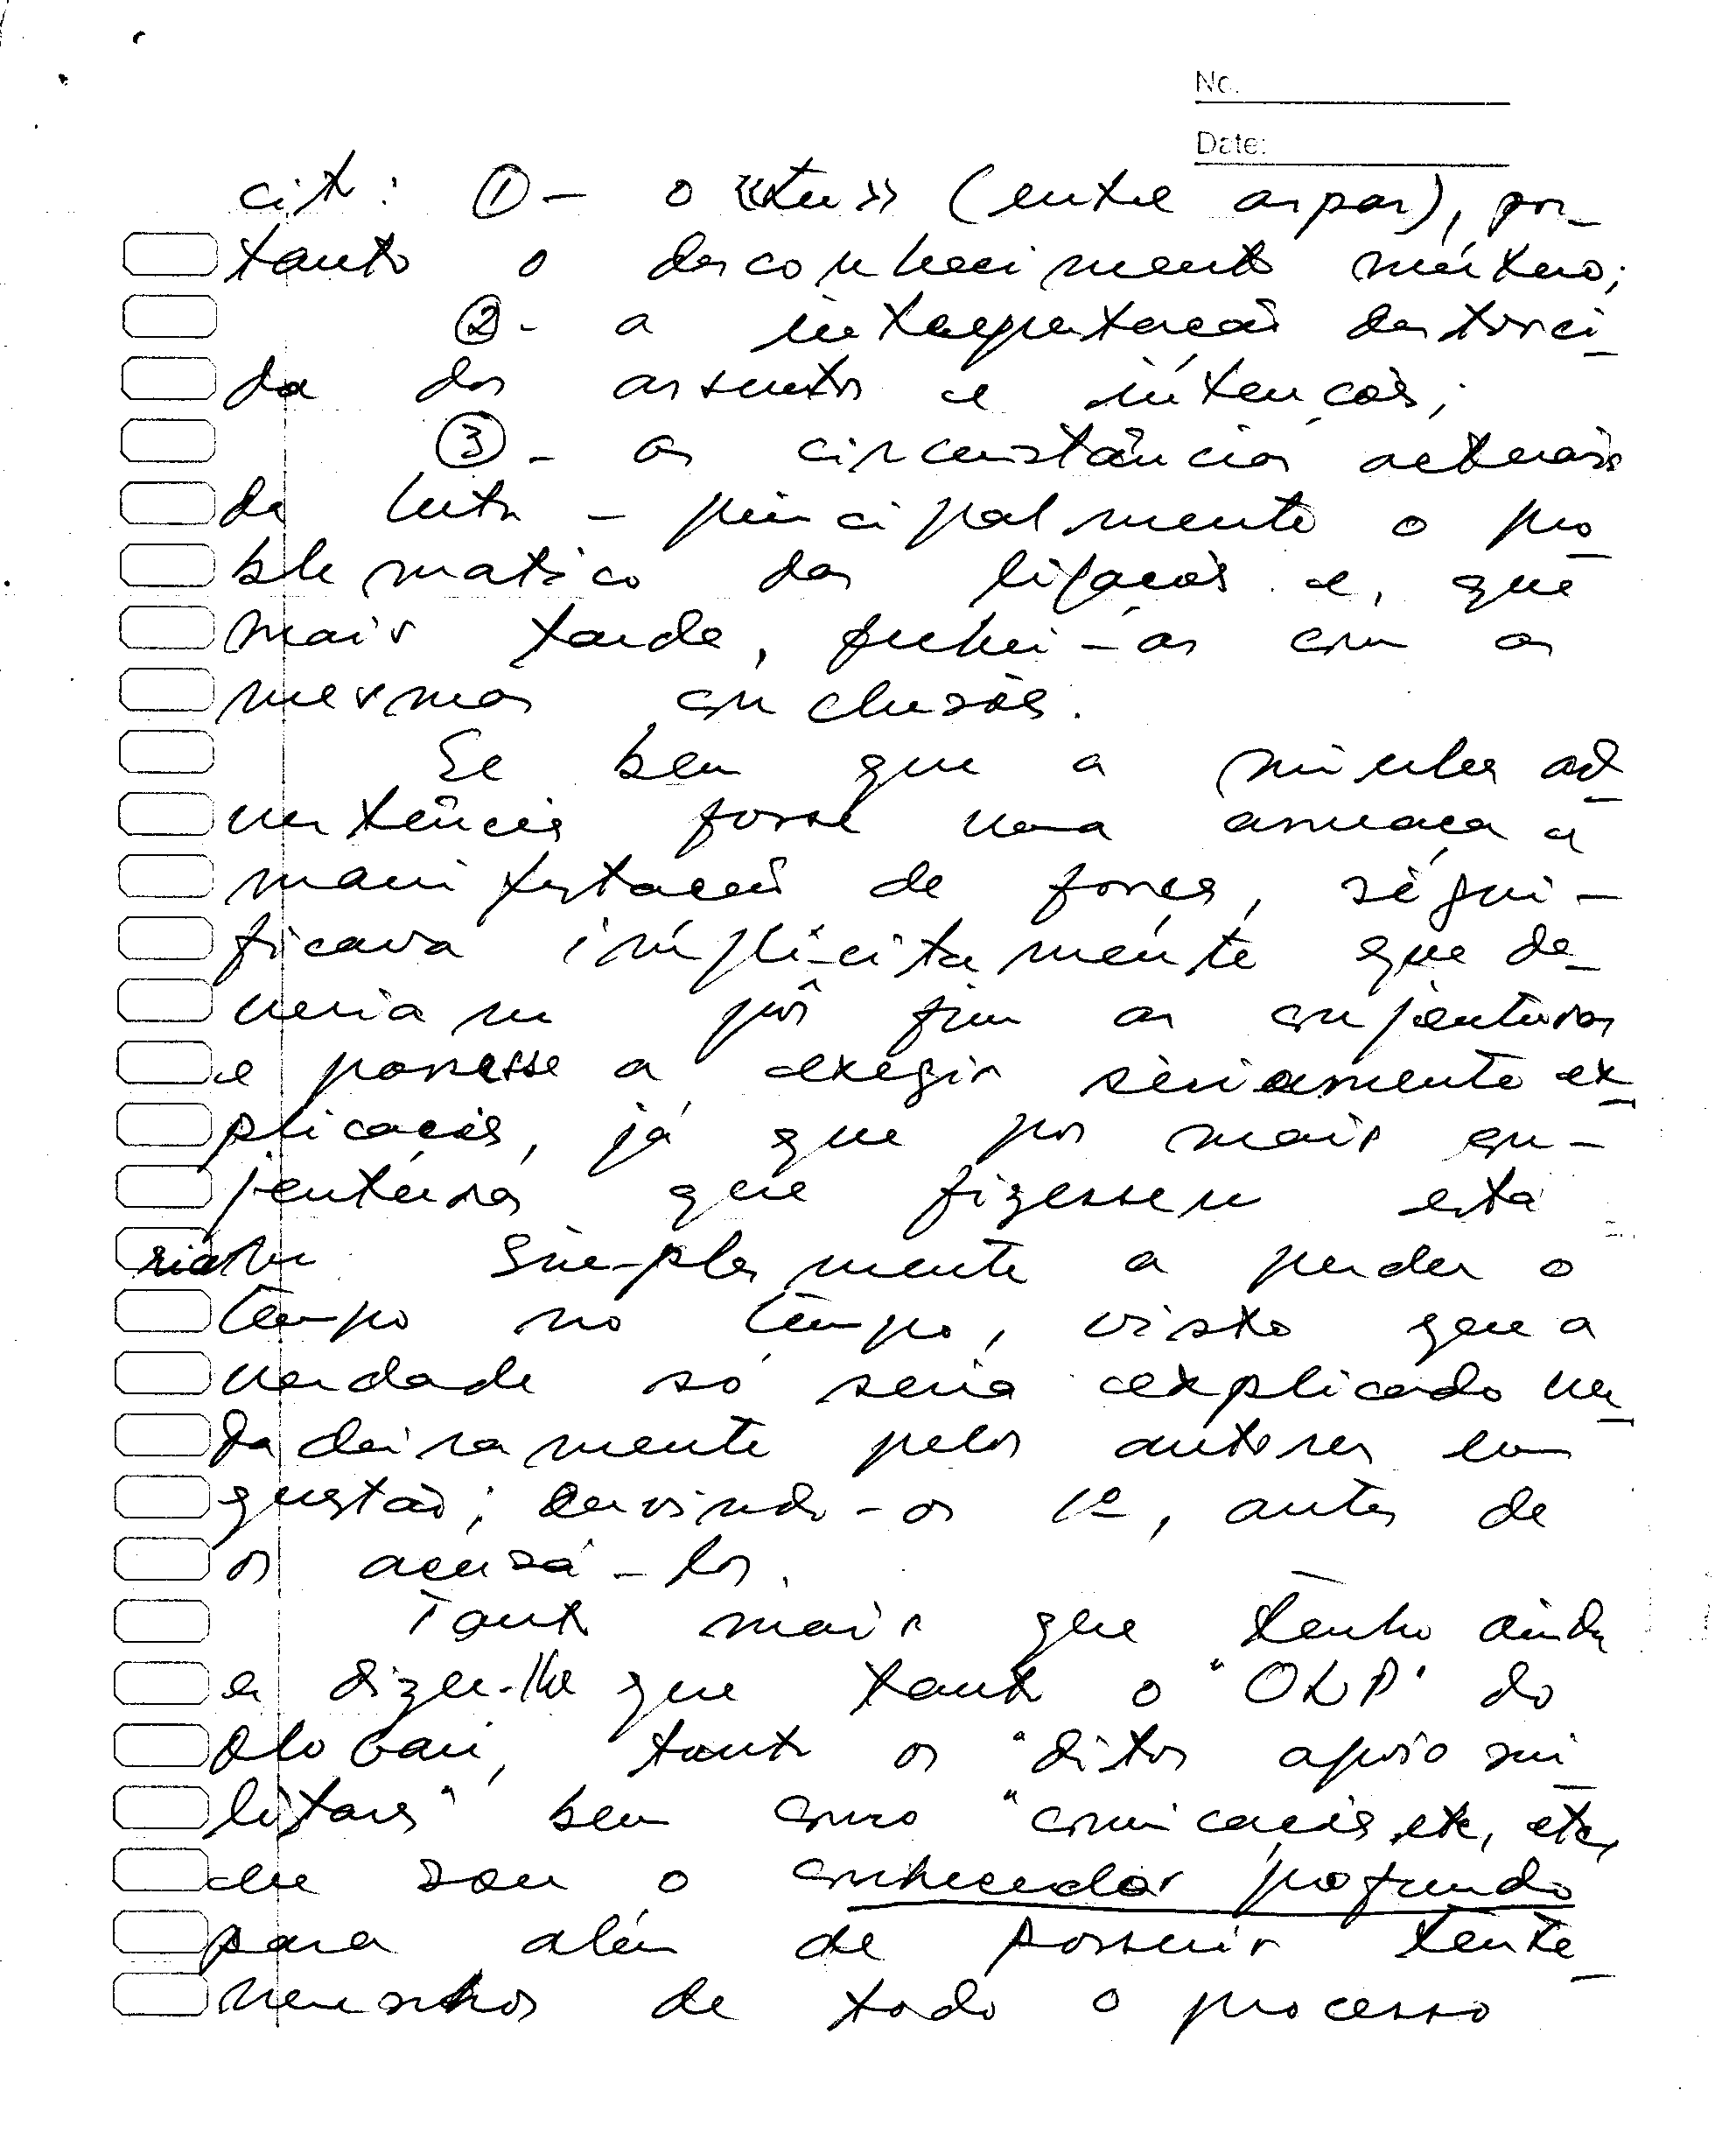 No.
Date:
cit: ① - o «tu» (entre aspas), por-
tanto o desconhecimento mútuo;
② - a interpretação destorci-
da dos assuntos e intenções;
③ - as circunstâncias actuais
da luta - principalmente o pro-
blematico das ligações e, que
mais tarde, fechei-as com as
mesmas conclusões.
Se bem que a minha ad-
vertência fosse uma ameaça à
manifestação de força, signi-
ficava implicitamente que de-
veriam pôr fim as conjenturas
e passasse a exegir sériamente ex-
plicações, já que por mais con-
jenturas que fizessem esta
riam Simplesmente a perder o
tempo no tempo, visto que a
verdade só seria explicado ver-
dadeiramente pelos autores em
questão; ouvindo-os 1º, antes de
os acusá-los.
Tanto mais que tenho ainda
a dizer-lhe que tanto o "OLP" do
tanto os "ditos apoio mi-
litares" bem como "comicações etc, etc,
eu sou o conhecedor profundo
para além de possuir teste-
munhos de todo o processo